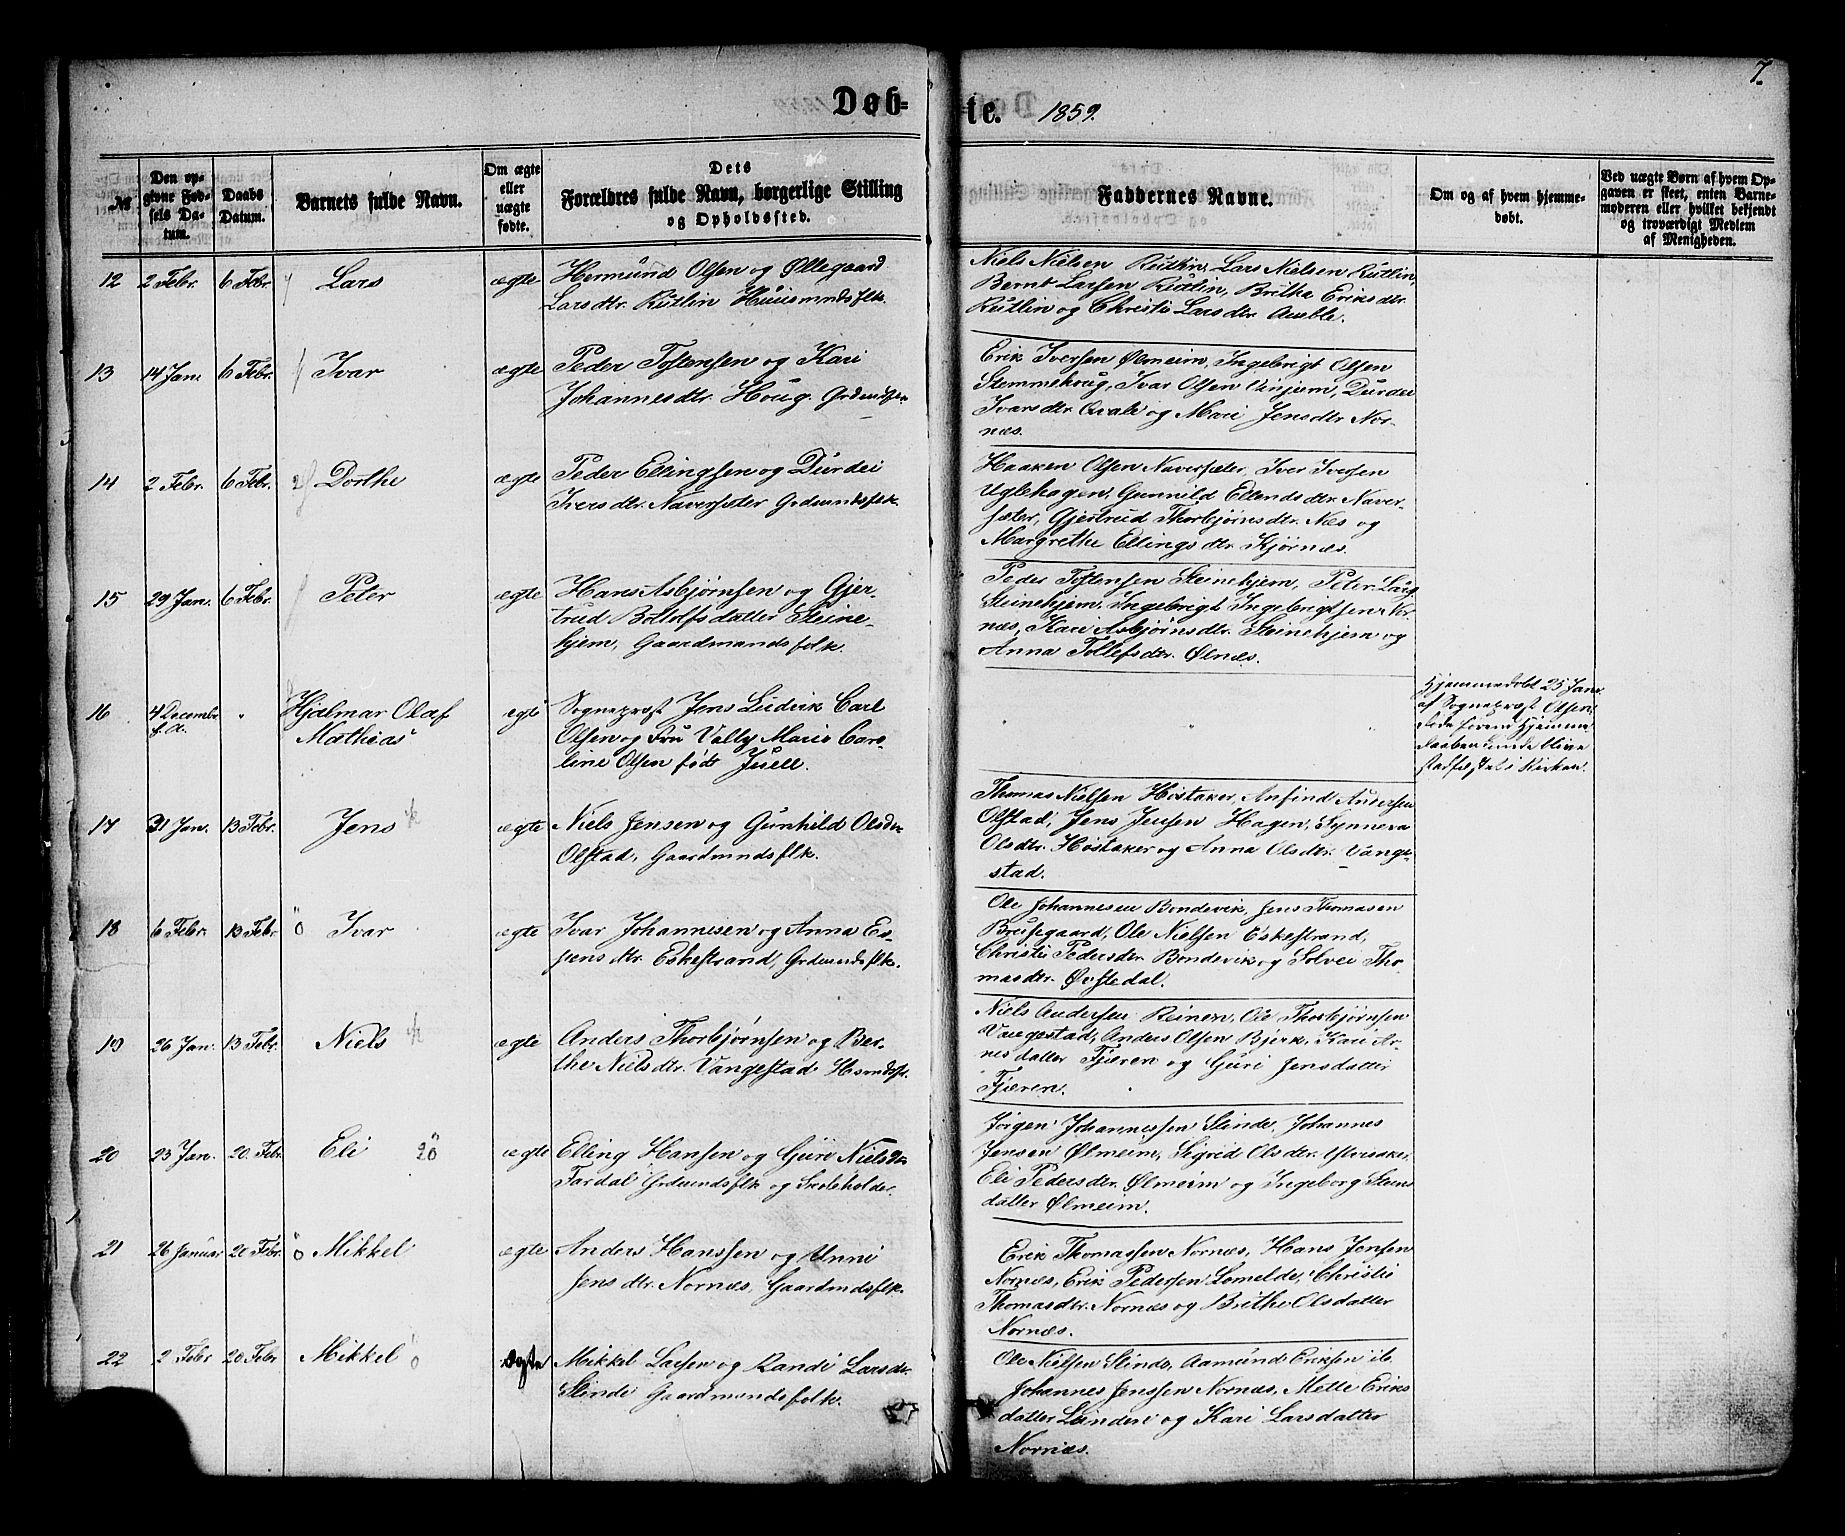 7.
Døb-
te. 1859.
№
Den op-
givne Fød-
sels Da-
tum.
Daabs
Datum.
Barnets fulde Navn.
Om ægte
eller
uægte
fødte.
Dets
Forældres fulde Navn, borgerlige Stilling
og Opholdssted.
Faddernes Navne.
Om og af hvem hjemme-
døbt.
Ved uægte Børn af hvem Op-
gaven er skeet, enten Barne-
moderen eller hvilket bekjendt
og troværdigt Medlem
af Menigheden.
12 2 Febr. 6 Febr. Lars ægte
Hermund Olsen og Øllegaard
Larsdtr. Rutlin Huusmndsflk.
Niels Nielsen Rutlin, Lars Nielsen Rutlin,
Bernt Larsen Rutlin, Britha Eriksdtr.
Rutlin og Christi Larsdtr. Amble.
13 14 Jan. 6 Febr. Ivar ægte
Peder Tostensen og Kari
Johannesdtr. Houg.
Erik Iversen Ølmeim, Ingebrigt Olsen
Stemmehoug, Ivar Olsen Vinjum, Durdei
Ivarsdtr. Qvale og Mari Jensdtr. Nor-
næs.
14 2 Febr. 6 Febr. Dorthe ægte
Peder Ellingsen og Durdei
Iversdtr. Naversæter Grdmndsflk.
Haaken Olsen Naversæter, Iver Iversen
Uglehagen, Gunnild Ellendsdtr. Naver-
sæter, Gjertrud Thorbjørnsdtr. Næs og
Margrethe Ellingsdtr. Kjørnæs.
15 29 Jan. 6 Febr. Peter ægte
Hans Asbjørnsen og Gjer-
trud Botolfsdatter Steine-
hjem, Gaardmandsfolk.
Peder Tostensen Steinehjem, Peter
Steinehjem, Ingebrigt Ingebrigtsen Nor-
næs, Kari Asbjørnsdtr. Steinehjem og
Anna Tollefsdtr. Ølnæs.
16 4 Decembr. f. A. " Hjalmar Olaf
Mathias
Sognepræst Jens Ludvik Carl
Olsen og Fru Vally Marie Caro-
line Olsen født Juell.
" "
Hjemmedøbt 25 Janr.
af Sognepræst Olsen
17 31 Jan. 13 Febr. Jens ægte
Niels Jensen og Gunhild Olsdtr
Olstad, Gaardmndsflk.
Thomas Nielsen Høstaker, Anfind Andersen
Olstad, Jens Jensen Hagen, Synneva
Olsdtr. Høstaker og Anna Olsdtr. Vange-
stad.
18 6 Febr. 13 Febr. Ivar ægte
Ivar Johannesen og Anna Es-
pensdtr. Eskestrand, Grdmndsflk.
Ole Johannesen Bondevik, Jens Thomasen
Bruflgaard, Ole Nielsen Eskestrand,
Christi Pedersdtr. Bondevik og Solvei Tho-
masdtr. Øvstedal.
19 26 Jan. 13 Febr. Niels ægte
Anders Thorbjørnsen og Ber-
the Nielsdtr. Vangestad
Niels Andersen Reinen, Ole Thorbjørnsen
Vangestad, Anders Olsen Bjørk, Kari Ar-
nesdatter Fjæren og Guri Jensdatter
Fjæren.
20 23 Jan. 20 Febr. Eli ægte
Elling Hansen og Guri Nielsdtr
Fardal Grdmndsflk og Skoleholder.
Jørgen Johannessen Slinde, Johannes
Jensen Ølmeim, Sigrid Olsdtr. Ylvisaker,
Eli Pedersdtr. Ølmeim og Ingeborg Steens
datter Ølmeim.
21 26 Januar 20 Febr. Mikkel ægte
Anders Hanssen og Unni
Jensdtr. Nornæs, Gaardmndsflk.
Erik Thomassen Nornæs, Hans Jensen
Nornæs, Erik Pedersen Lomelde, Christi
Thomasdtr. Nornæs og Brithe Olsdatter
Nornæs.
22 2 Febr 20 Febr Mikkel ægte
Mikkel Larsen og Randi Larsdtr
Slinde Gaardmandsfolk.
Ole Nielsen Slinde, Aamund Eriksen ib.
Johannes Jenssen Nornæs, Mette Eriks
datter og Kari Larsdatter
Nornæs.